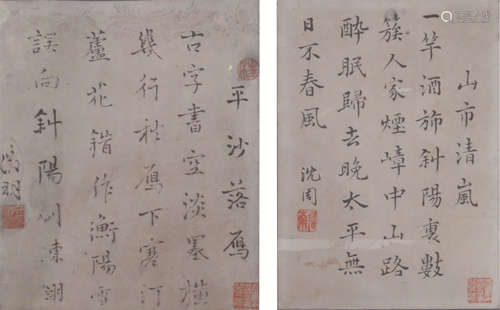 山市清嵐
一竿酒旆斜陽裏數
簇人家煙嶂中山路
醉眠歸去晚太平無
日不春風 沈周
平沙落鴈
古字書空淡墨橫
幾行秋鴈下寒汀
蘆花錯作衡陽雪
誤向斜陽刷凍翎